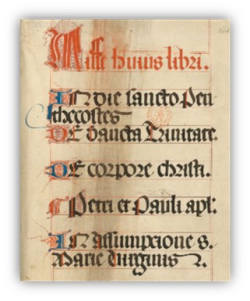 Misse huius libri.
In die sancto Pen
thecostes
De sancta Trinitate.
De corpore christi.
Petri et Pauli apl.
In assumpcione s.
Marie virginis